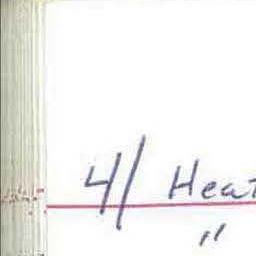 4/ Heat
"